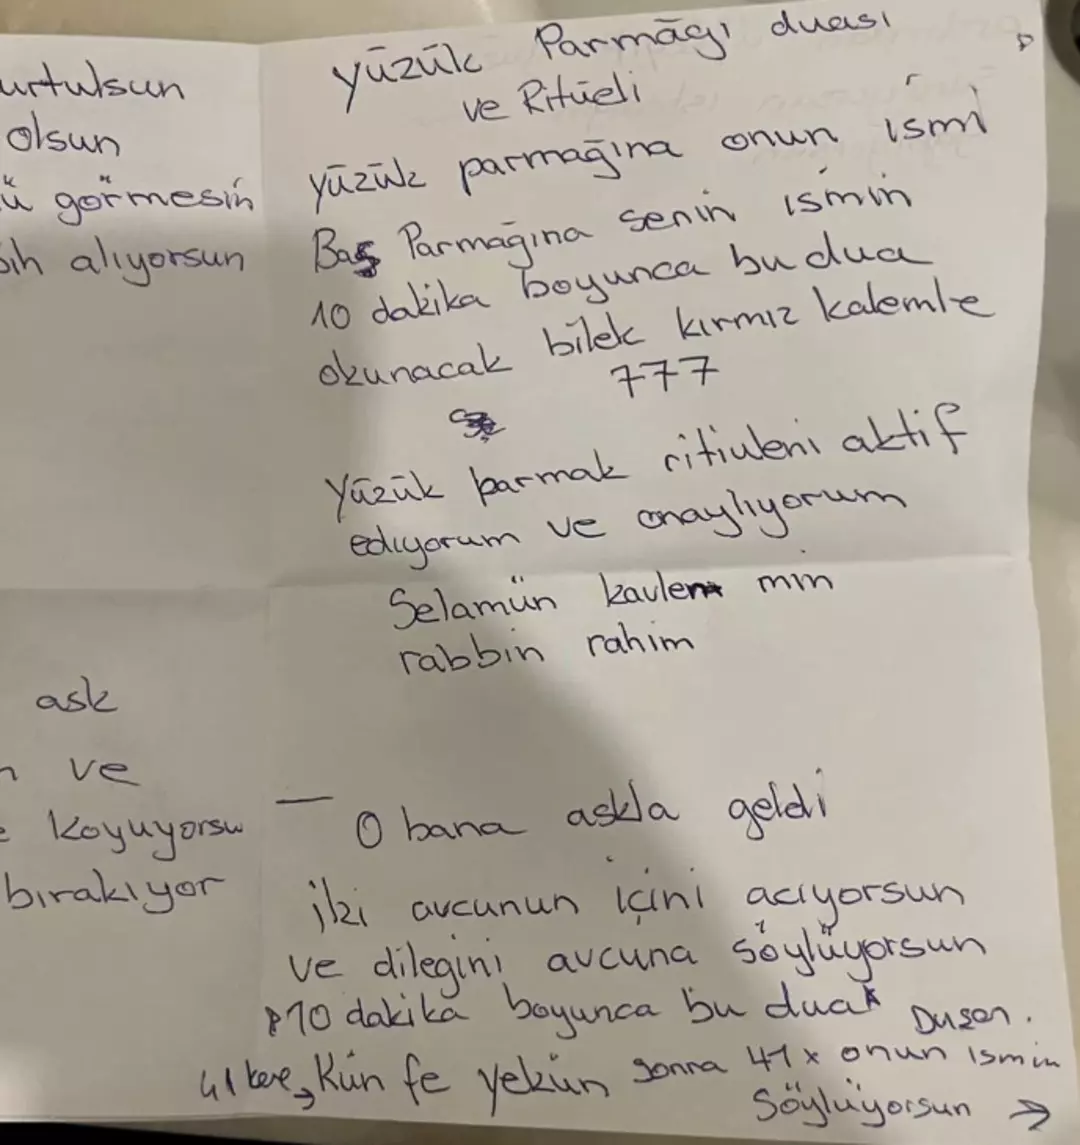 urtulsun
olsun
ü görmesin
sih alıyorsun
ask
ve
e koyuyorsu
bırakıyor
yüzük Parmağı duası
ve Ritüeli
yüzük parmağına onun ismi
Baş Parmağına senin ismin
10 dakika boyunca bu dua
okunacak bilek kırmız kalemle
777
Yüzük parmak ritiuleni aktif
ediyorum ve onaylıyorum
Selamün kavlen min
rabbin rahim
— O bana askla geldi
iki avcunun içini acıyorsun
ve dilegini avcuna söylüyorsun
10 dakika boyunca bu dua
41 kere, Kün fe yekün sonra 41x onun ismin
söylüyorsun →